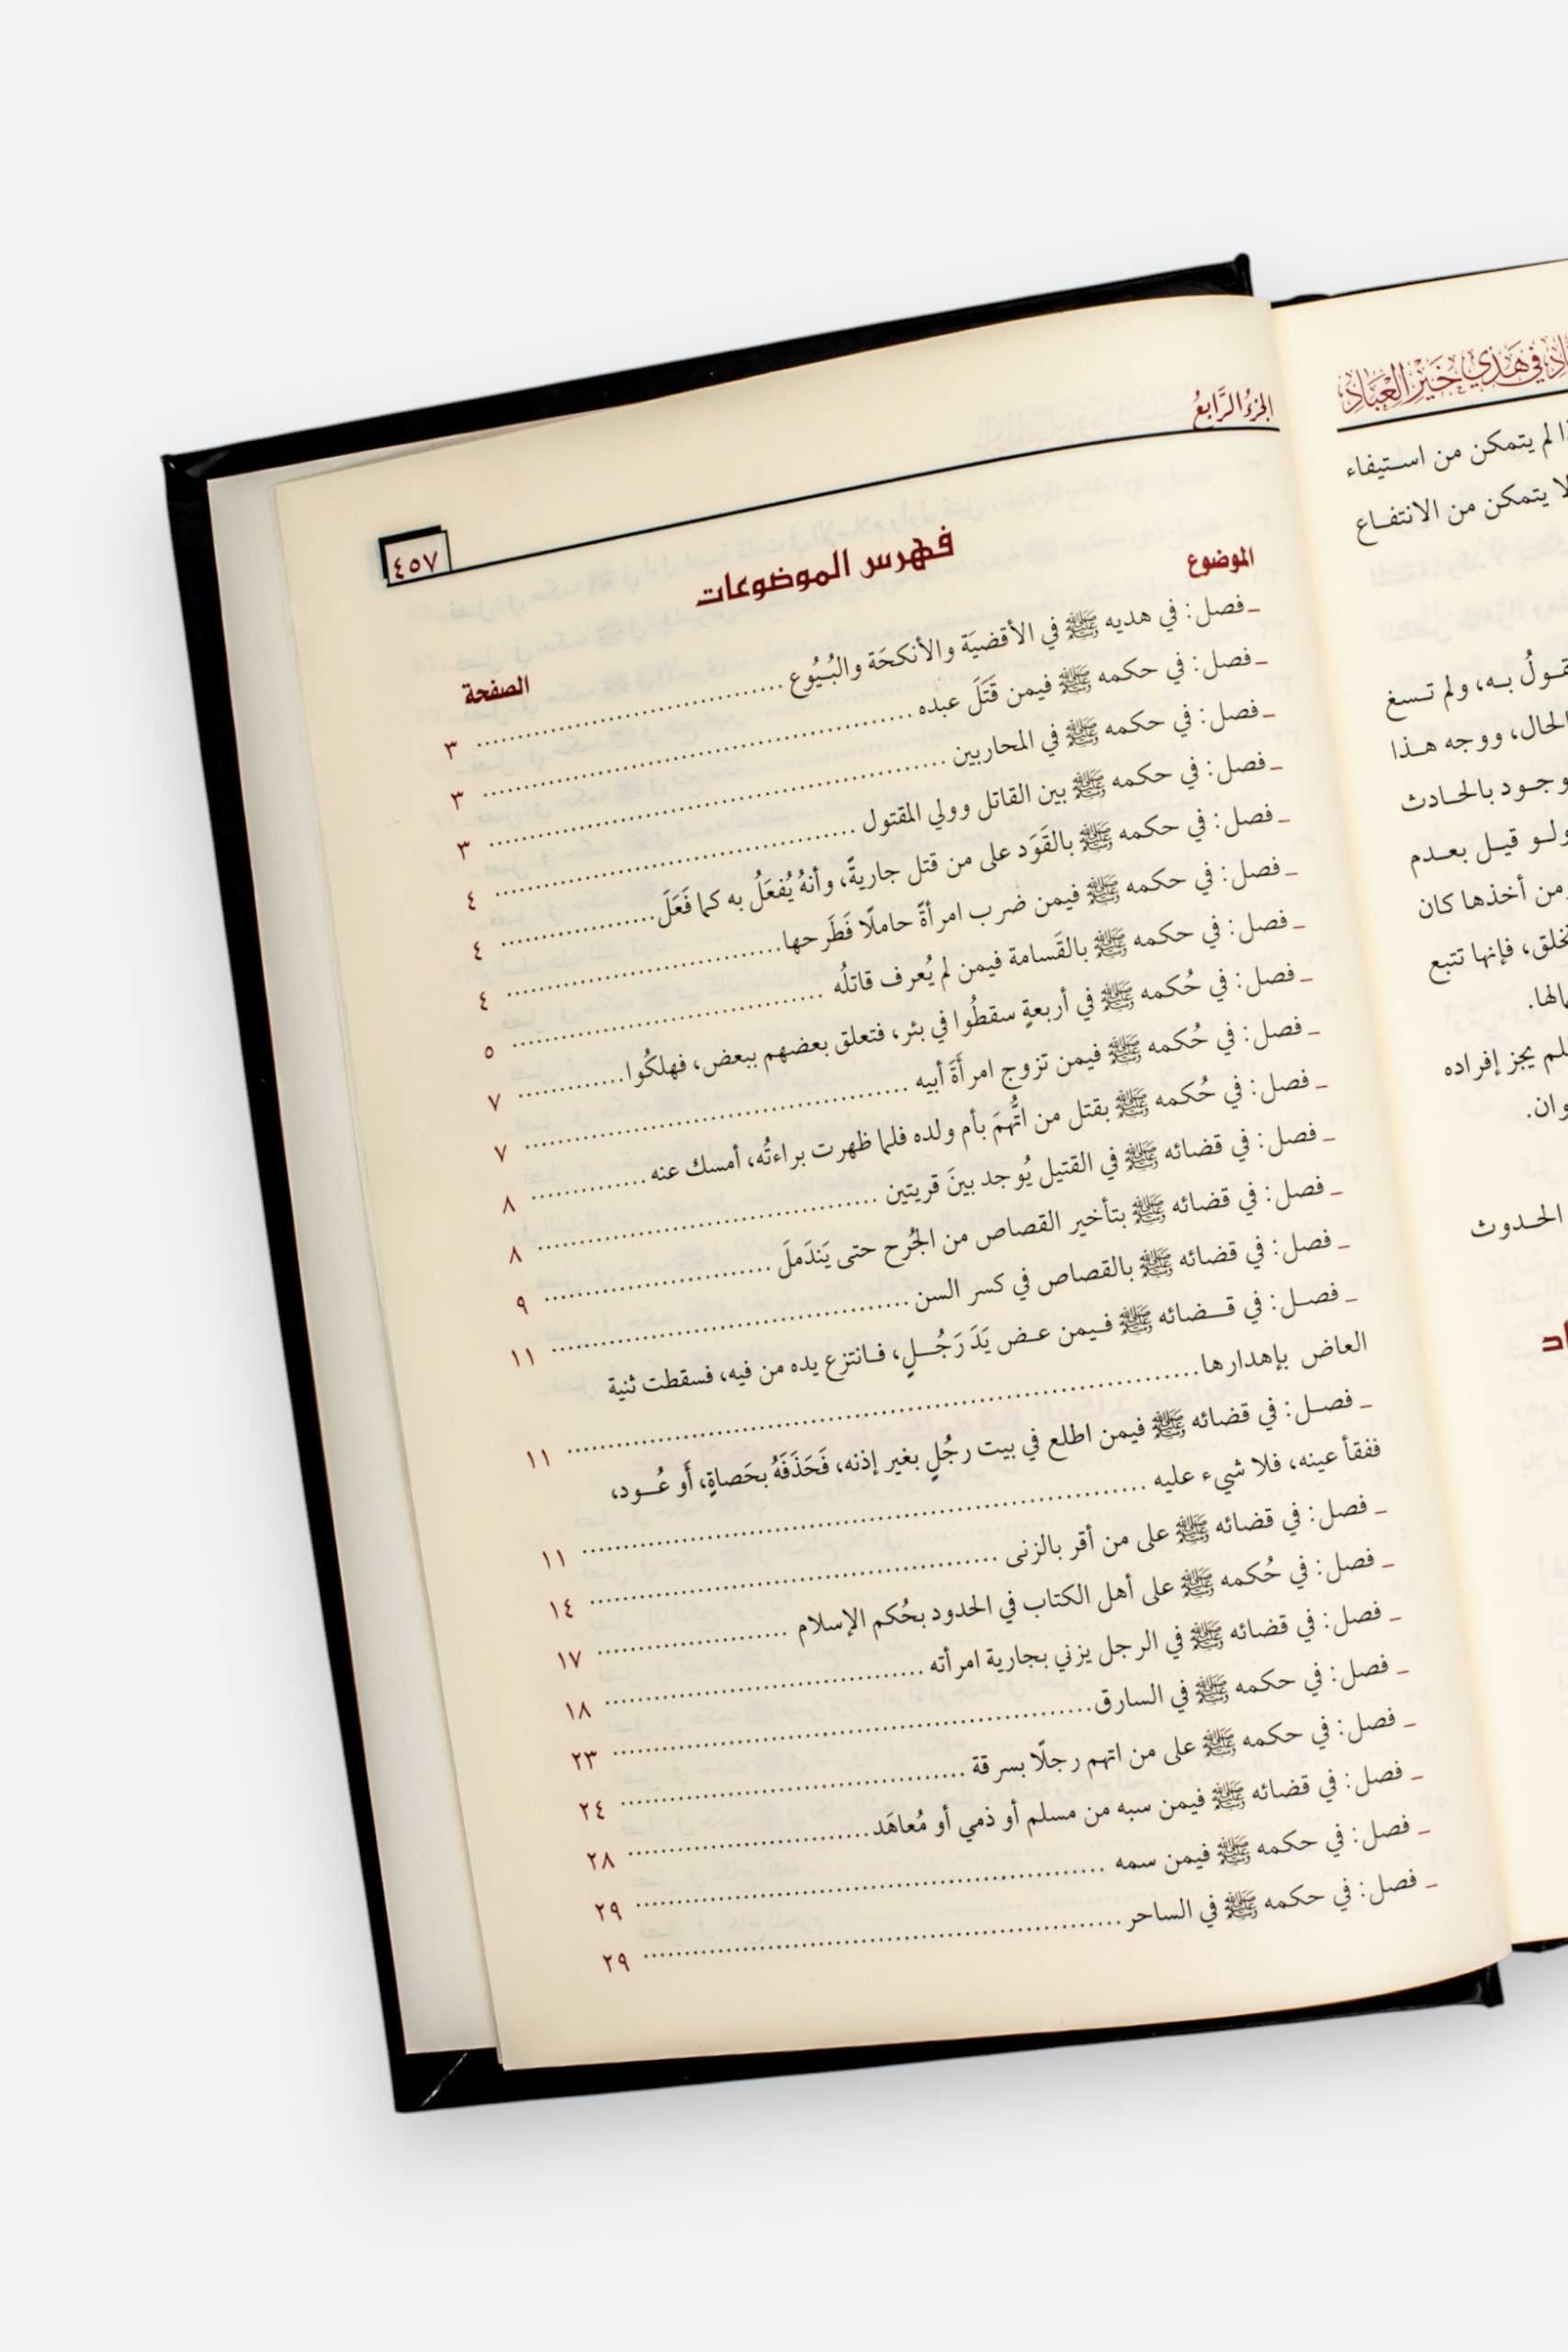 في هَدْي خَيْرِ العِبَادِ
لم يتمكن من استيفاء
لا يتمكن من الانتفاع
به، ولم تسغ
الحال، ووجه هذا
بالحادث
ولو قيل بعدم
من أخذها كان
فإنها تتبع
فلم يجز إفراده
الحدوث
الجزءُ الرَّابعُ
٤٥٧
فهرس الموضوعات
الموضوع
الصفحة
_ فصل: في هديه ﷺ في الأقضيَة والأنكحَة والبُيُوع .......... ٣
_ فصل: في حكمه ﷺ فيمن قَتَلَ عبده .......... ٣
_ فصل: في حكمه ﷺ في المحاربين .......... ٣
_ فصل: في حكمه ﷺ بين القاتل وولي المقتول .......... ٤
_ فصل: في حكمه ﷺ بالقَوَد على من قتل جاريةً، وأنهُ يُفعَلُ به كما فَعَلَ .......... ٤
_ فصل: في حكمه ﷺ فيمن ضرب امرأةً حاملًا فَطَرحها .......... ٤
_ فصل: في حكمه ﷺ بالقَسامة فيمن لم يُعرف قاتلُه .......... ٥
_ فصل: في حُكمه ﷺ في أربعةٍ سقطُوا في بئر، فتعلق بعضهم ببعض، فهلكُوا .......... ٧
_ فصل: في حُكمه ﷺ فيمن تزوج امرأَةَ أبيه .......... ٧
_ فصل: في حُكمه ﷺ بقتل من اتُّهمَ بأم ولده فلما ظهرت براءتُه، أمسك عنه .......... ٨
_ فصل: في قضائه ﷺ في القتيل يُوجد بينَ قريتين .......... ٨
_ فصل: في قضائه ﷺ بتأخير القصاص من الجُرح حتى يَندَملَ .......... ٩
_ فصل: في قضائه ﷺ بالقصاص في كسر السن .......... ١١
_ فصل: في قضائه ﷺ فيمن عض يَدَ رَجُلٍ، فانتزع يده من فيه، فسقطت ثنية
العاض بإهدارها .......... ١١
_ فصل: في قضائه ﷺ فيمن اطلع في بيت رجُلٍ بغير إذنه، فَحَذَفَهُ بحَصاةٍ، أَو عُود،
ففقأ عينه، فلا شيء عليه .......... ١١
_ فصل: في قضائه ﷺ على من أقر بالزنى .......... ١٤
_ فصل: في حُكمه ﷺ على أهل الكتاب في الحدود بحُكم الإسلام .......... ١٧
_ فصل: في قضائه ﷺ في الرجل يزني بجارية امرأته .......... ١٨
_ فصل: في حكمه ﷺ في السارق .......... ٢٣
_ فصل: في حكمه ﷺ على من اتهم رجلًا بسرقة .......... ٢٤
_ فصل: في قضائه ﷺ فيمن سبه من مسلم أو ذمي أو مُعاهَد .......... ٢٨
_ فصل: في حكمه ﷺ فيمن سمه .......... ٢٩
_ فصل: في حكمه ﷺ في الساحر .......... ٢٩